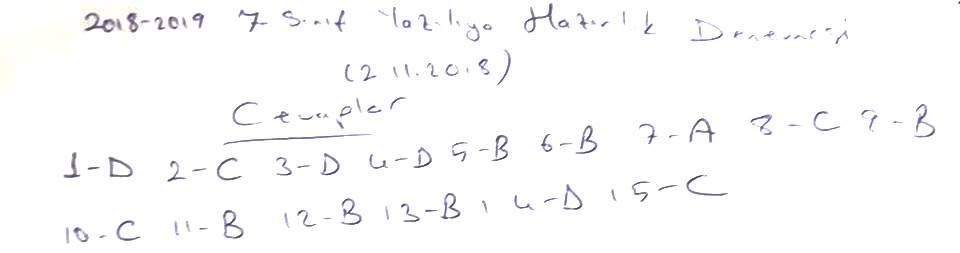 2018-2019 7 Sınıf Yazılıya Hazırlık Denemesi
(2 11.2018)
Cevaplar
1-D 2-C 3-D 4-D 5-B 6-B 7-A 8-C 9-B
10-C 11-B 12-B 13-B 14-D 15-C